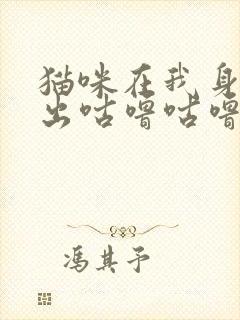 猫咪在我身
出咕噜咕噜
冯其予